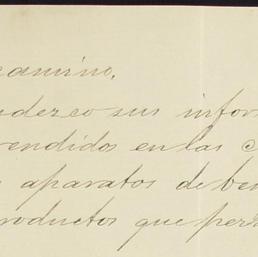 camino.
adezco sus infor
vendidos en las
aparatos de ben
roductos que per